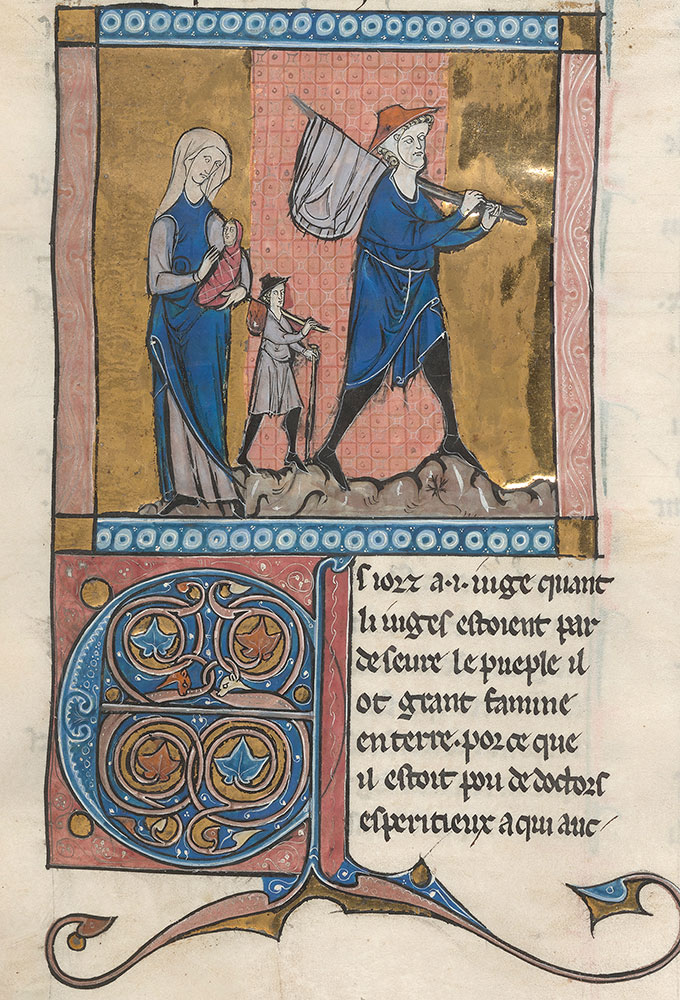 Es iorz a·i·iuge quant
li iuges estoient par
deseure le pueple il
ot grant famine
en terre·por ce que
il estoit pou de doctors
esperitieux a qui auc-